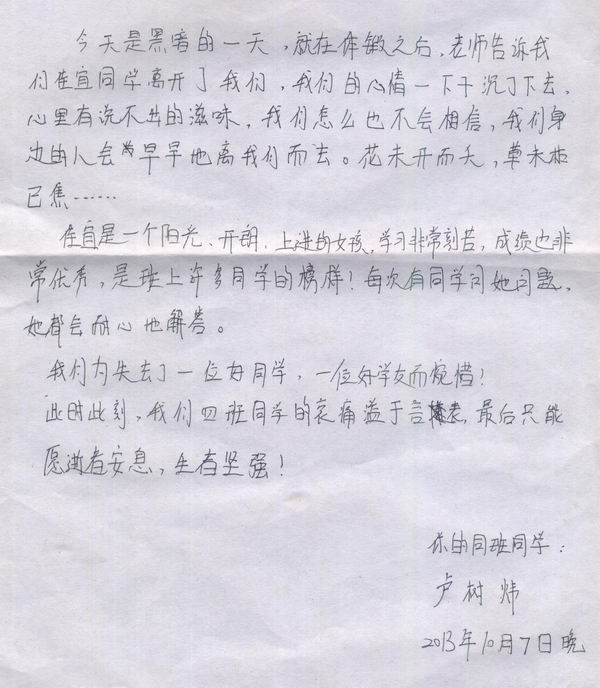 今天是黑暗的一天，就在体锻之后，老师告诉我
们在宜同学离开了我们，我们的心情一下子沉了下去，
心里有说不出的滋味，我们怎么也不会相信，我们身
边的人会早早地离我们而去。花未开而夭，草未
已焦……
在宜是一个阳光、开朗、上进的女孩，学习非常刻苦，成绩也非
常优秀，是班上许多同学的榜样！每次有同学问她问题，
她都会耐心地解答。
我们为失去了一位好同学，一位好学友而惋惜！
此时此刻，我们四班同学的哀痛溢于言表，最后只能
愿逝者安息，生者坚强！
你的同班同学：
卢树炜
2013年10月7日晚